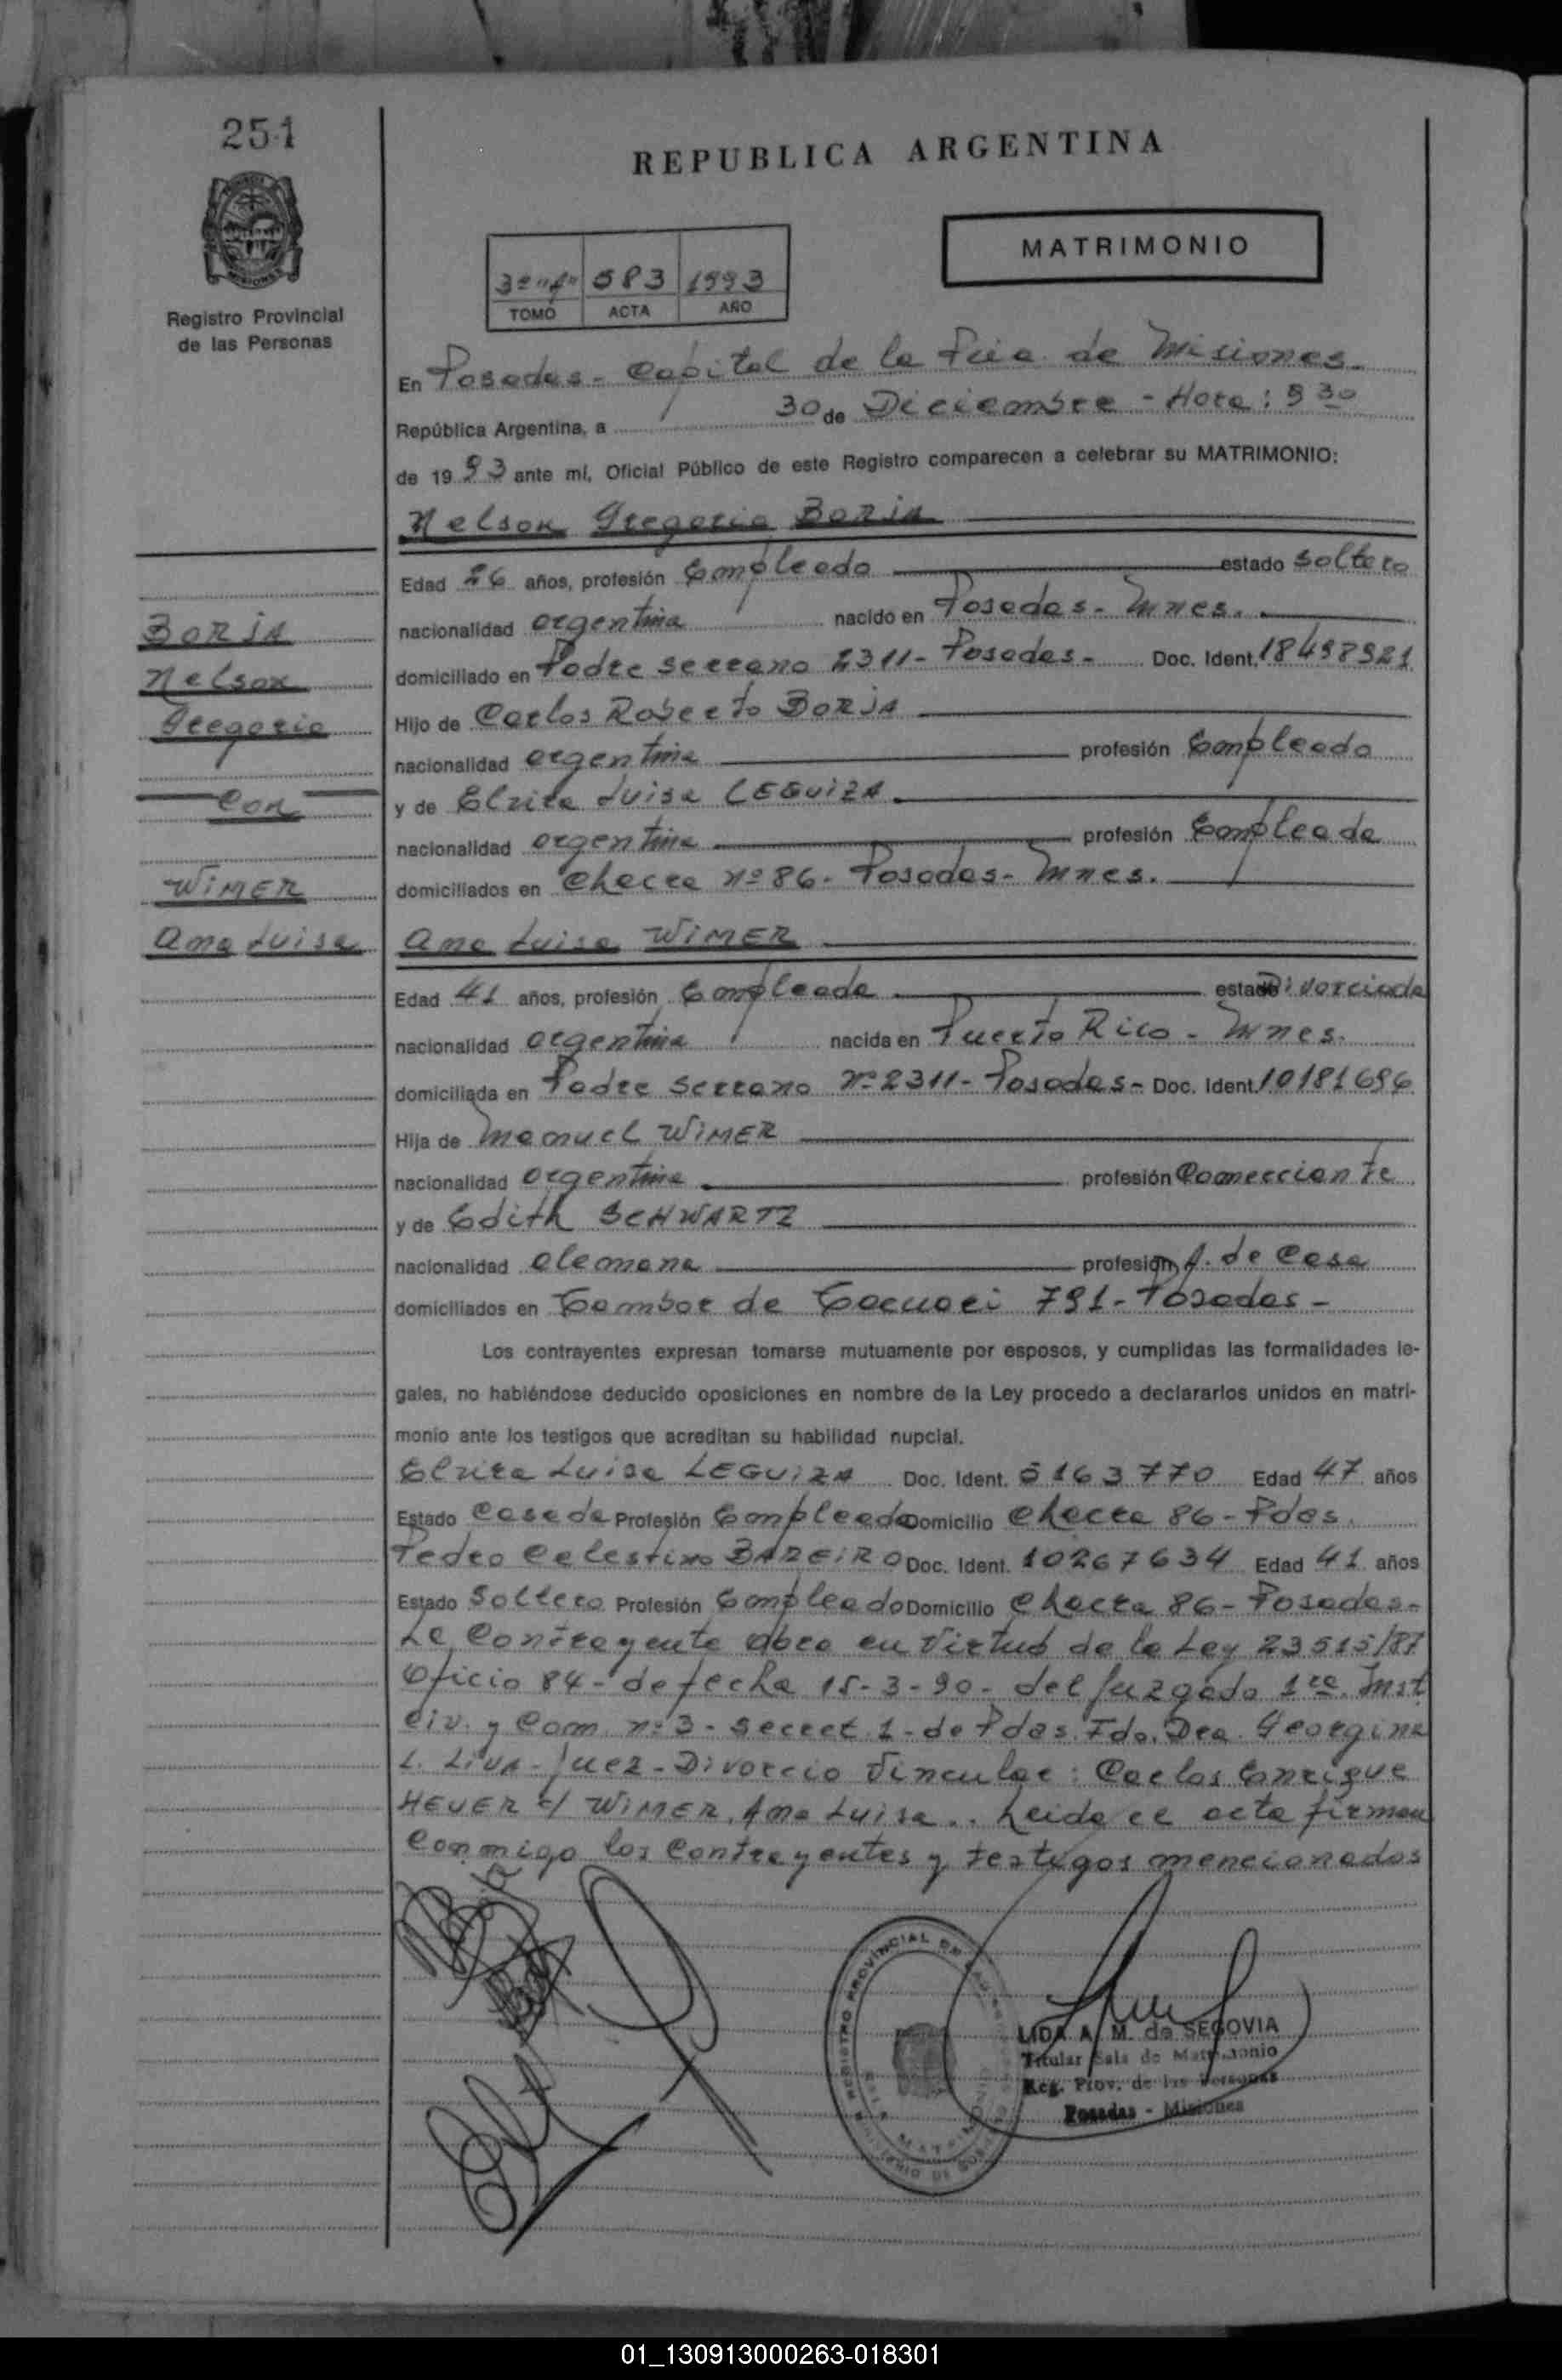 251
REPUBLICA ARGENTINA
MATRIMONIO
583 1993
TOMO ACTA AÑO
Registro Provincial
de las Personas
En Posadas - Capital de la Pcia. de Misiones.
República Argentina, a 30 de Diciembre - Hora: 9 30
de 1993 ante mí, Oficial Público de este Registro comparecen a celebrar su MATRIMONIO:
Nelson Gregorio BORJA
Edad 26 años, profesión Empleado estado Soltero
BORJA
nacionalidad argentina nacido en Posadas - Mnes.
Nelson
domiciliado en Padre Serrano 2311 - Posadas - Doc. Ident. 18498921
Gregorio
Hijo de Carlos Roberto BORJA
nacionalidad argentina profesión Empleado
Con
y de Elvira Luisa LEGUIZA
nacionalidad argentina profesión Empleada
WIMER
domiciliados en Chacra nº 86 - Posadas - Mnes.
Ana Luisa
Ana Luisa WIMER
Edad 41 años, profesión Empleada estado Divorciada
nacionalidad argentina nacida en Puerto Rico - Mnes.
domiciliada en Padre Serrano Nº 2311 - Posadas - Doc. Ident. 10181696
Hija de Manuel WIMER
nacionalidad argentina profesión Comerciante
y de Edith SCHWARTZ
nacionalidad alemana profesión A. de Casa
domiciliados en Tambor de Tacuari 791 - Posadas -
Los contrayentes expresan tomarse mutuamente por esposos, y cumplidas las formalidades le-
gales, no habiéndose deducido oposiciones en nombre de la Ley procedo a declararlos unidos en matri-
monio ante los testigos que acreditan su habilidad nupcial.
Elvira Luisa LEGUIZA Doc. Ident. 5163770 Edad 47 años
Estado Casada Profesión Empleada Domicilio Chacra 86 - Pdas.
Pedro Celestino BAREIRO Doc. Ident. 10267634 Edad 41 años
Estado Soltero Profesión Empleado Domicilio Chacra 86 - Posadas -
La Contrayente obra en Virtud de la Ley 23515/87
Oficio 84 - de fecha 15-3-90 - del Juzgado 1ra. Inst
Civ. y Com nº 3 - Secret. 1 - de Pdas. Fdo. Dra. Georgina
L. LIVA - Juez - Divorcio Vincular: Carlos Enrique
HEUER c/ WIMER, Ana Luisa.. Leida el acta firman
Conmigo los Contrayentes y testigos mencionados
LIDA A. M. de SEGOVIA
Titular Sala de Matrimonio
Reg. Prov. de las Personas
Posadas - Misiones
01_130913000263-018301